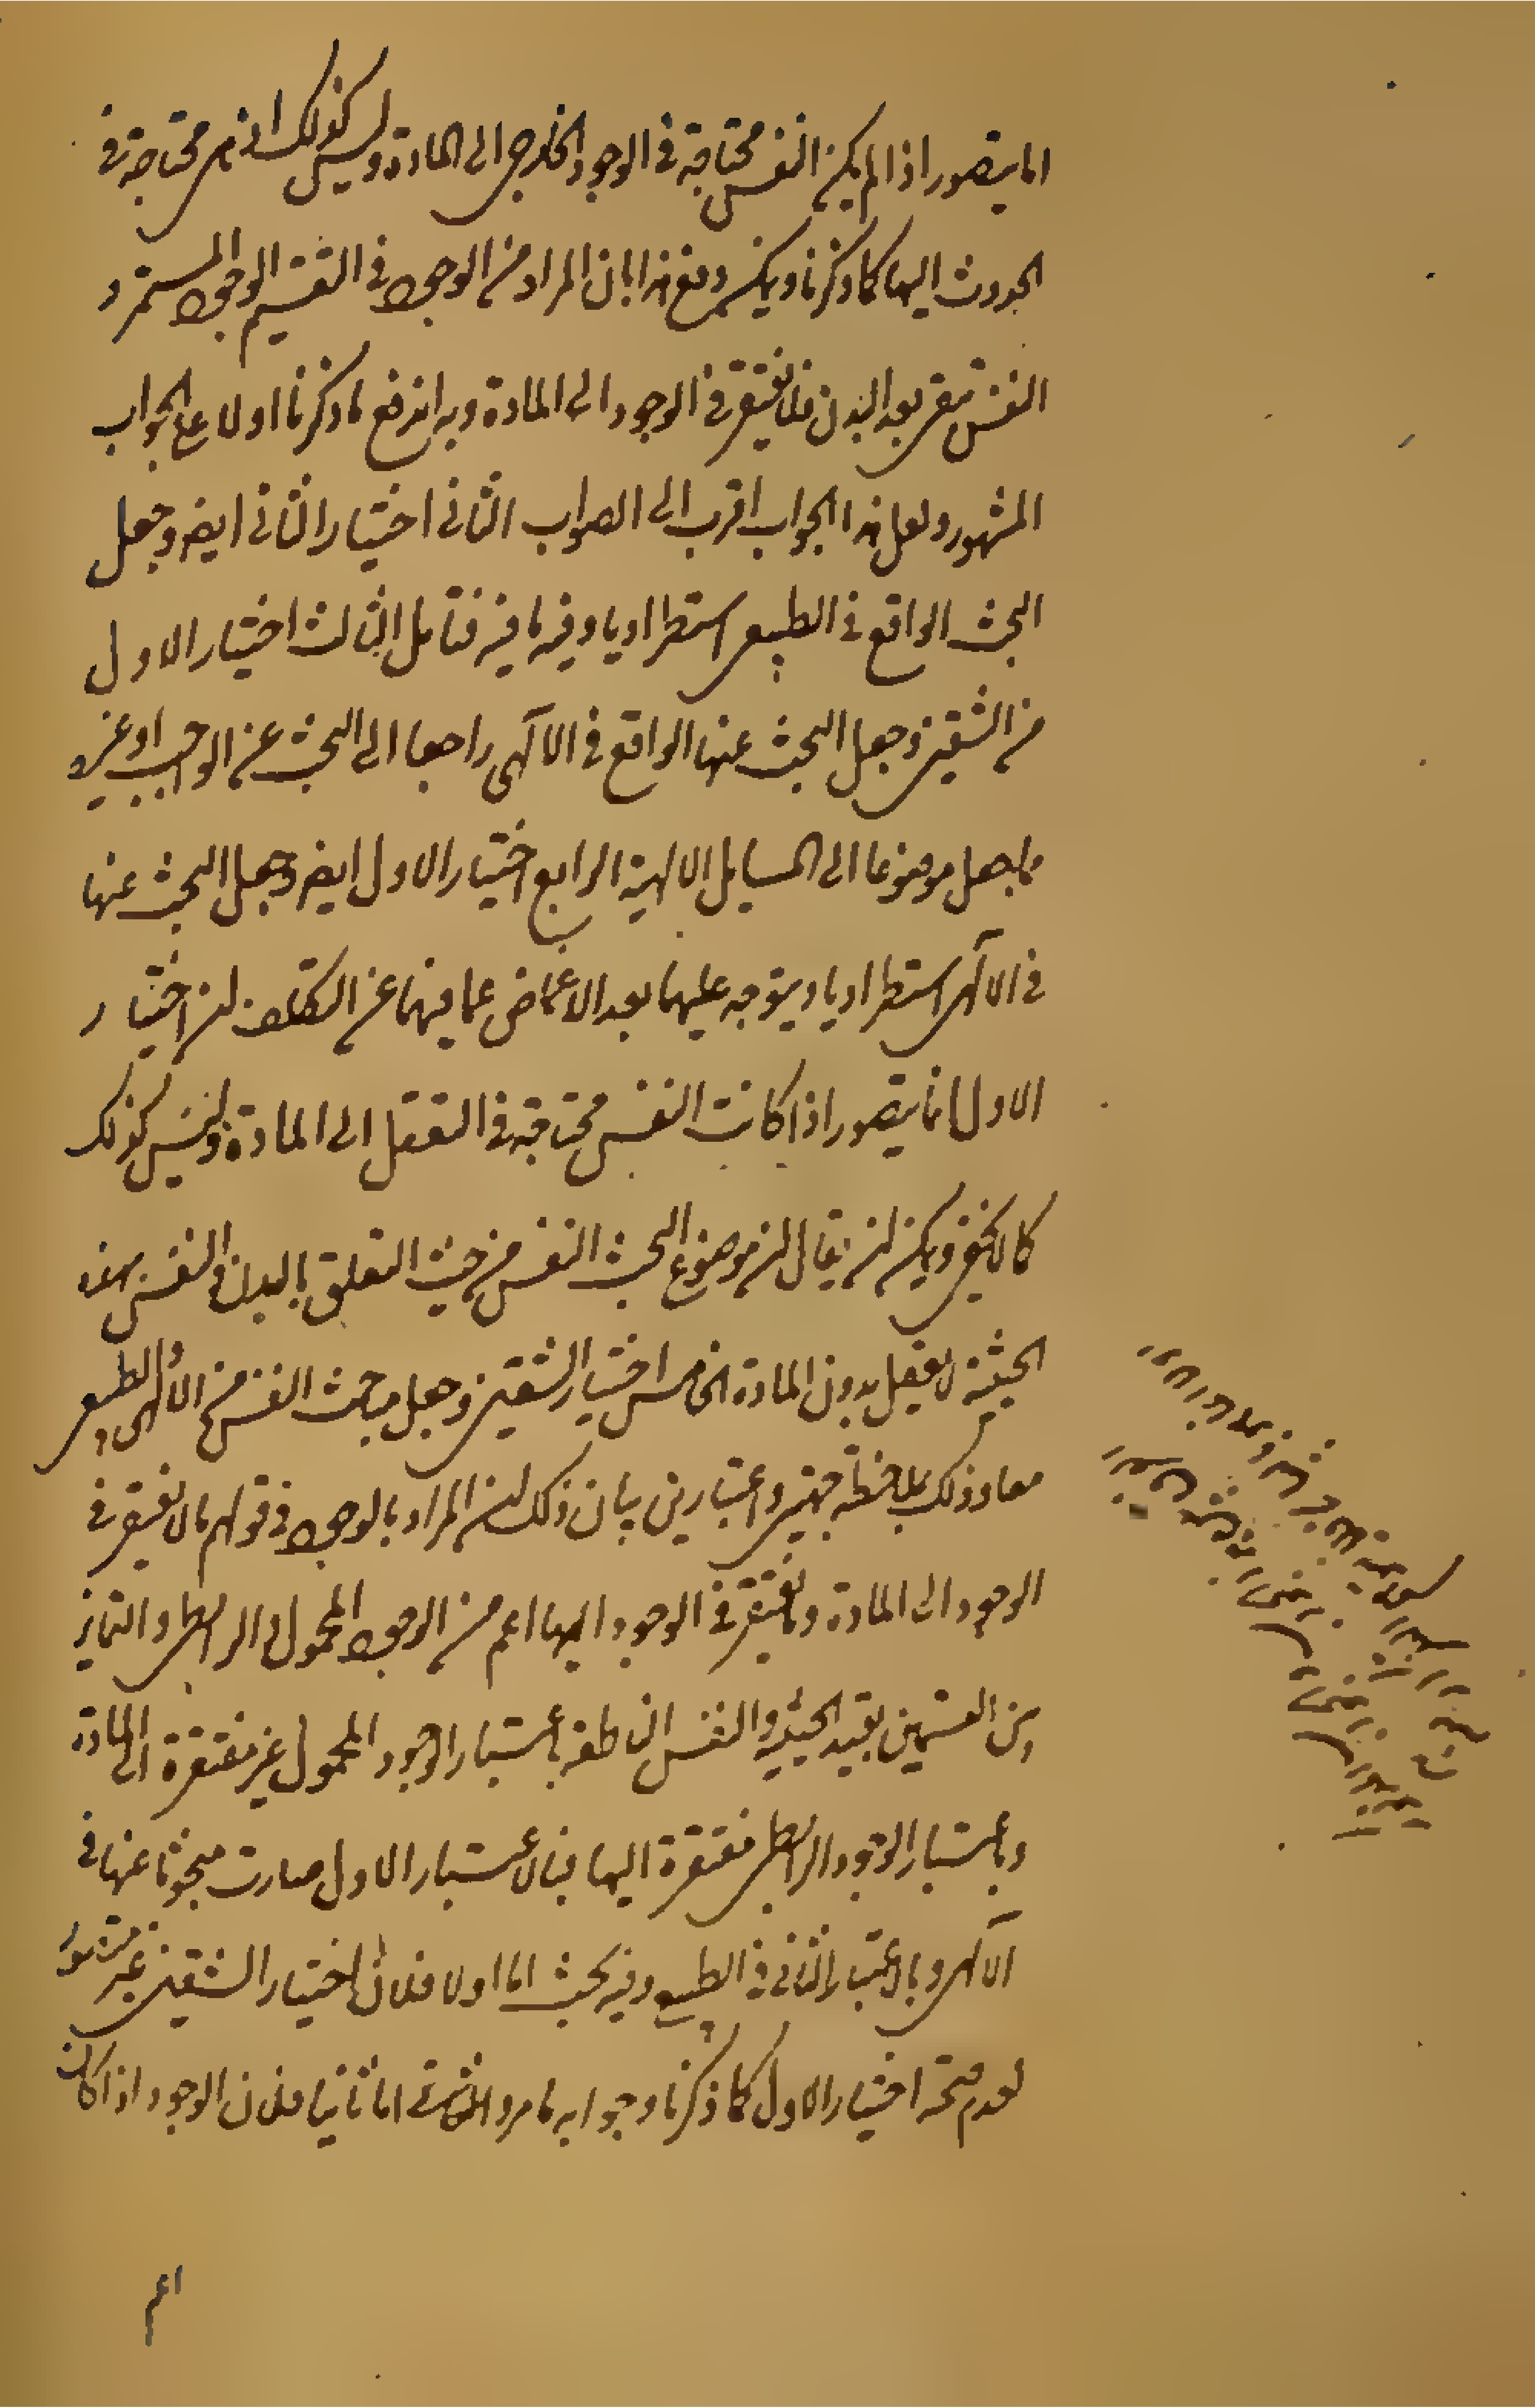 انما يتصور اذا لم يكن النفس محتاجة في الوجود الخارجي الى المادة وليس كذلك اذ هي محتاجة في
الحدوث اليها كما ذكرنا ويمكن دفع هذا بان المراد من الوجود في التقسيم الوجود المستمر و
النفس تبقى بعد البدن فلا تفتقر في الوجود الى المادة وبه اندفع ما ذكرنا اولا على الجواب
المشهور ولعل هذا الجواب اقرب الى الصواب الثاني اختيار الثاني ايضا وجعل
البحث الواقع في الطبيعي استطراديا وفيه ما فيه فتامل الثالث اختيار الاول
من الشقين وجعل البحث عنها الواقع في الآلهي راجعا الى البحث عن الواجب او غيره
مما جعل موضوعا الى المسايل الالهية الرابع اختيار الاول ايضا وجعل البحث عنها
في الآلهي استطراديا ويتوجه عليهما بعد الاغماض عما فيهما عن التكلف ان اختيار
الاول انما يتصور اذا كانت النفس محتاجة في التعقل الى المادة وليس كذلك
كما لا يخفى ويمكن ان يقال ان موضوع البحث النفس من حيث التعلق بالبدن والنفس بهذه
الحيثية لا يعقل بدون المادة الخامس اختيار الشقين وجعل مباحث النفس من الآلهي والطبيعي
معا وذلك بملاحظة جهتين واعتبارين بيان ذلك ان المراد بالوجود في قولهم ما لا يفتقر في
الوجود الى المادة وما يفتقر في الوجود اليها اعم من الوجود المحمولي والرابطي والتمايز
بين القسمين بقيد الحيثية والنفس الناطقة باعتبار الوجود المحمولي غير مفتقرة الى المادة
وباعتبار الوجود الرابطي مفتقرة اليها فبالاعتبار الاول صارت مبحوثا عنها في
الآلهي وبالاعتبار الثاني في الطبيعي وفيه بحث اما اولا فلان اختيار الشقين غير متصور
لعدم صحة اختيار الاول كما ذكرنا وجوابه ما مر اما ثانيا فلان الوجود اذا كان
اعم